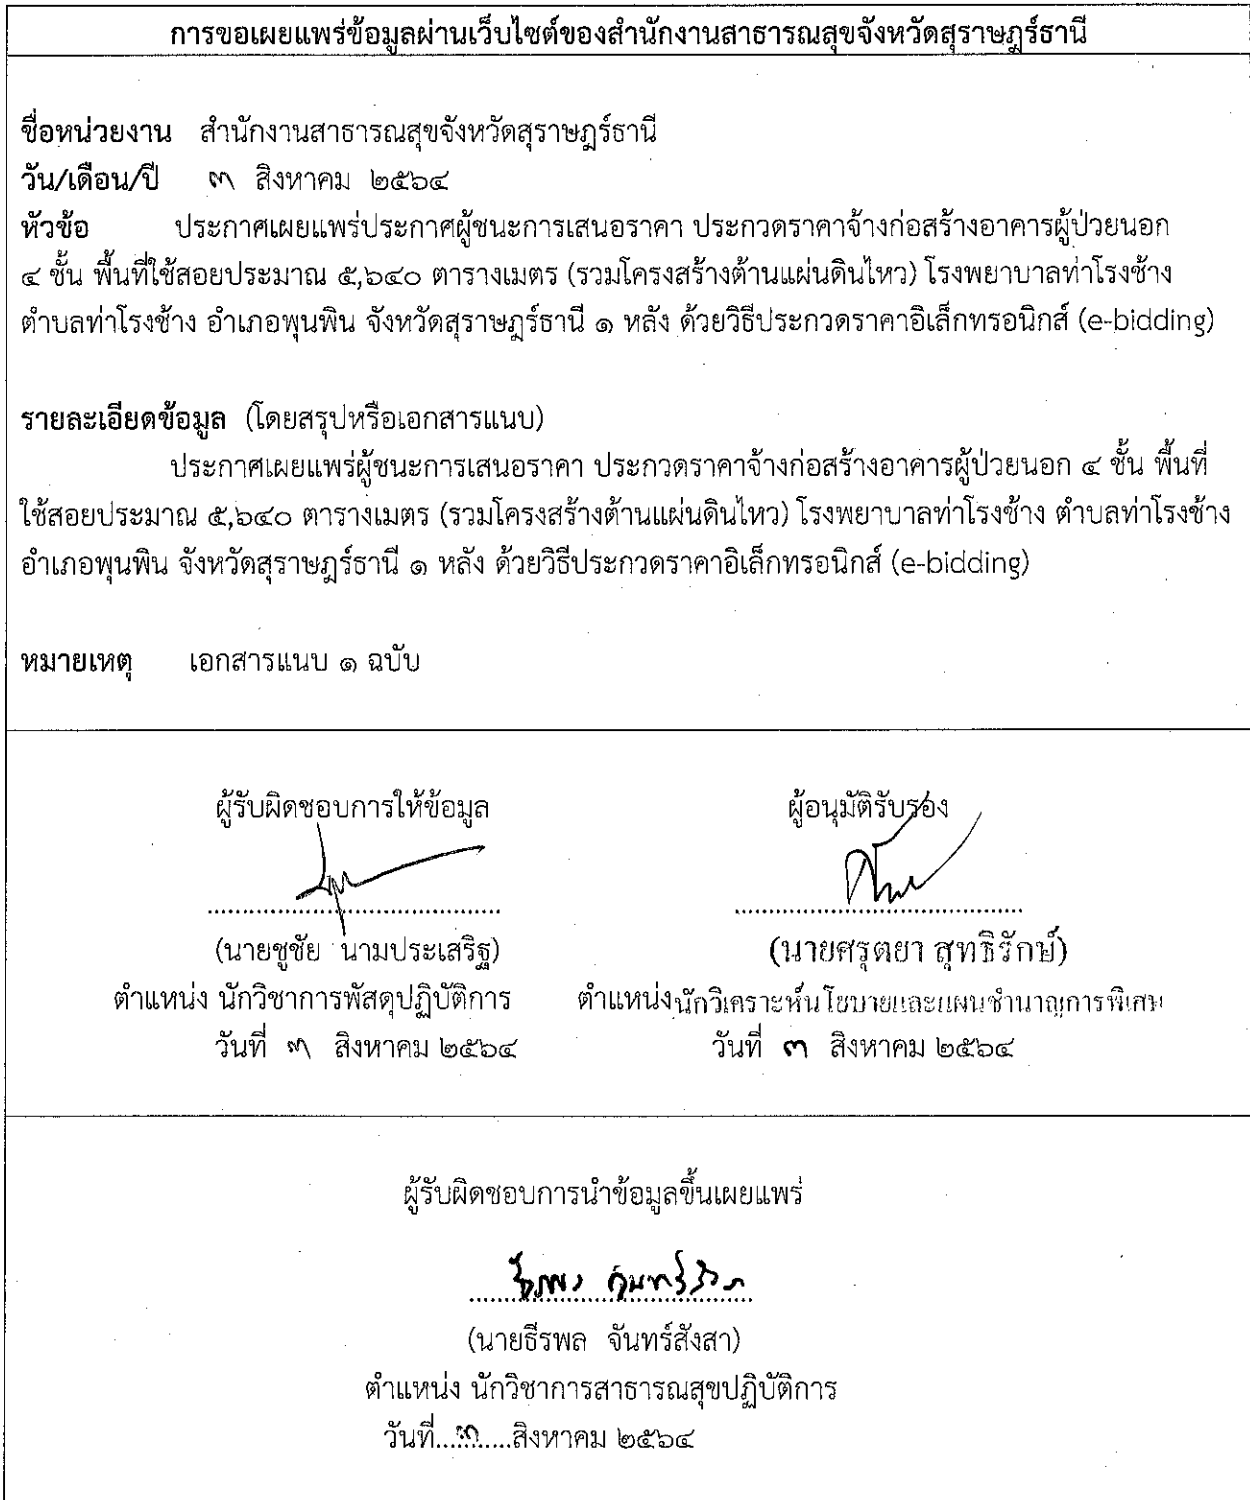 การขอเผยแพร่ข้อมูลผ่านเว็บไซต์ของสำนักงานสาธารณสุขจังหวัดสุราษฎร์ธานี
ชื่อหน่วยงาน สำนักงานสาธารณสุขจังหวัดสุราษฎร์ธานี
วัน/เดือน/ปี ๓ สิงหาคม ๒๕๖๔
หัวข้อ ประกาศเผยแพร่ประกาศผู้ชนะการเสนอราคา ประกวดราคาจ้างก่อสร้างอาคารผู้ป่วยนอก
๔ ชั้น พื้นที่ใช้สอยประมาณ ๕,๖๔๐ ตารางเมตร (รวมโครงสร้างต้านแผ่นดินไหว) โรงพยาบาลท่าโรงช้าง
ตำบลท่าโรงช้าง อำเภอพุนพิน จังหวัดสุราษฎร์ธานี ๑ หลัง ด้วยวิธีประกวดราคาอิเล็กทรอนิกส์ (e-bidding)
รายละเอียดข้อมูล (โดยสรุปหรือเอกสารแนบ)
ประกาศเผยแพร่ผู้ชนะการเสนอราคา ประกวดราคาจ้างก่อสร้างอาคารผู้ป่วยนอก ๔ ชั้น พื้นที่
ใช้สอยประมาณ ๕,๖๔๐ ตารางเมตร (รวมโครงสร้างต้านแผ่นดินไหว) โรงพยาบาลท่าโรงช้าง ตำบลท่าโรงช้าง
อำเภอพุนพิน จังหวัดสุราษฎร์ธานี ๑ หลัง ด้วยวิธีประกวดราคาอิเล็กทรอนิกส์ (e-bidding)
หมายเหตุ เอกสารแนบ ๑ ฉบับ
ผู้รับผิดชอบการให้ข้อมูล ผู้อนุมัติรับรอง
(นายชูชัย นามประเสริฐ) (นายศรุตยา สุทธิรักษ์)
ตำแหน่ง นักวิชาการพัสดุปฏิบัติการ ตำแหน่งนักวิเคราะห์นโยบายและแผนชำนาญการพิเศษ
วันที่ ๓ สิงหาคม ๒๕๖๔ วันที่ ๓ สิงหาคม ๒๕๖๔
ผู้รับผิดชอบการนำข้อมูลขึ้นเผยแพร่
(นายธีรพล จันทร์สังสา)
ตำแหน่ง นักวิชาการสาธารณสุขปฏิบัติการ
วันที่...๓.....สิงหาคม ๒๕๖๔